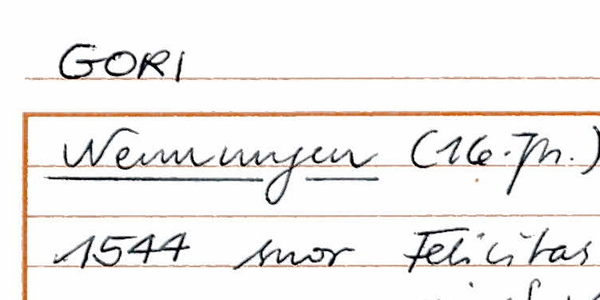 GORI
Wemmingen (16. Jh.)
1544 suor Felicitas